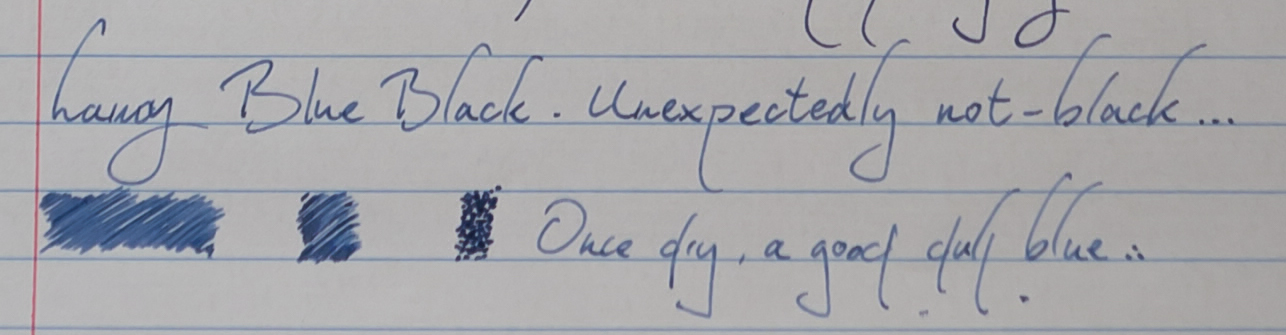 Lamy Blue Black. Unexpectedly not-black...
Once dry, a good dull blue...